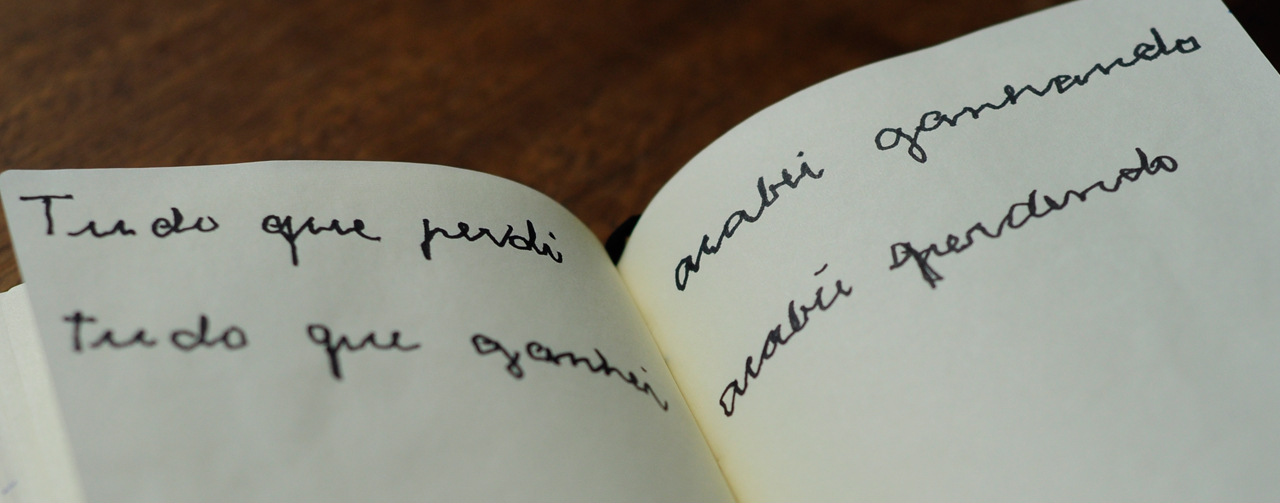 Tudo que perdi
tudo que ganhei
acabei ganhando
acabei perdendo